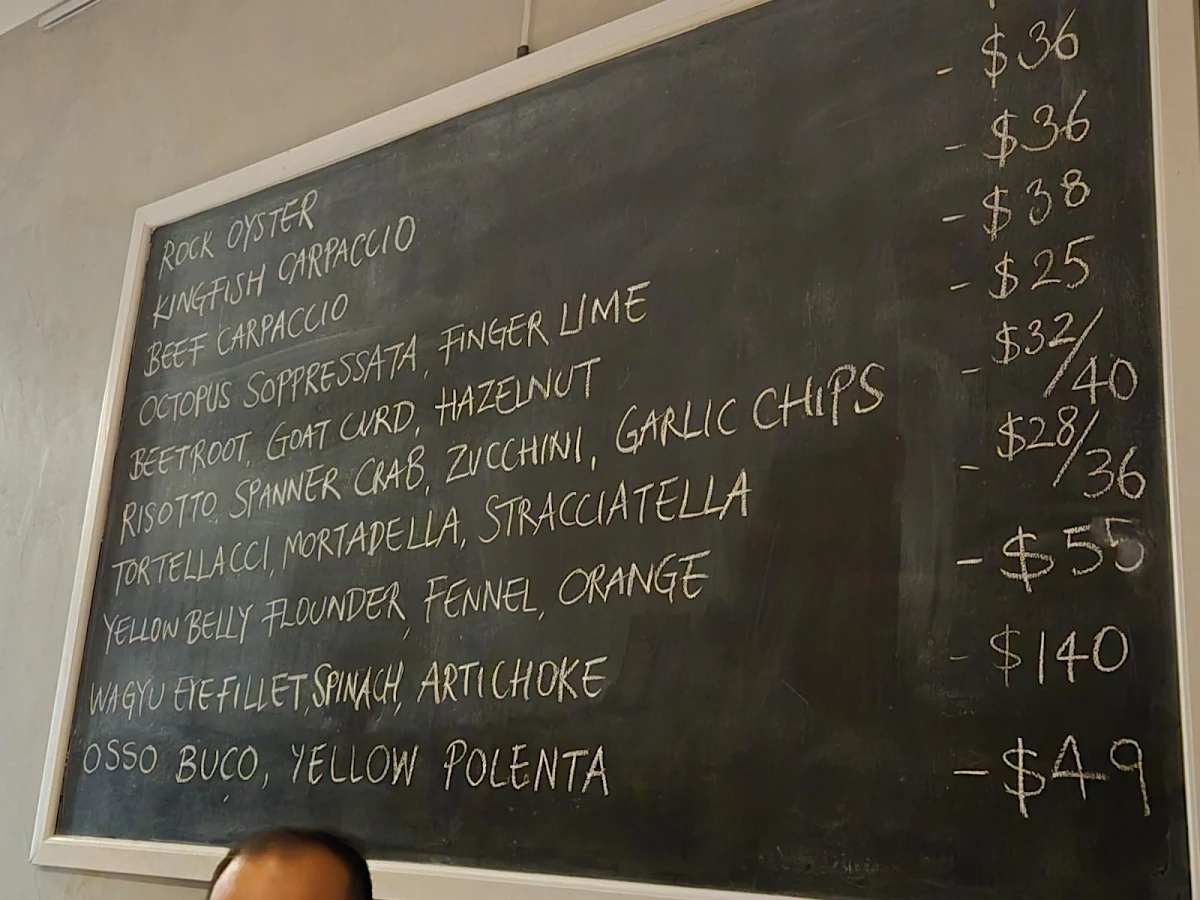 ROCK OYSTER
KINGFISH CARPACCIO - $36
BEEF CARPACCIO - $36
OCTOPUS SOPPRESSATA, FINGER LIME - $38
BEETROOT, GOAT CURD, HAZELNUT - $25
RISOTTO, SPANNER CRAB, ZUCCHINI, GARLIC CHIPS - $32/40
TORTELLACCI, MORTADELLA, STRACCIATELLA - $28/36
YELLOW BELLY FLOUNDER, FENNEL, ORANGE - $55
WAGYU EYE FILLET, SPINACH, ARTICHOKE - $140
OSSO BUCO, YELLOW POLENTA - $49